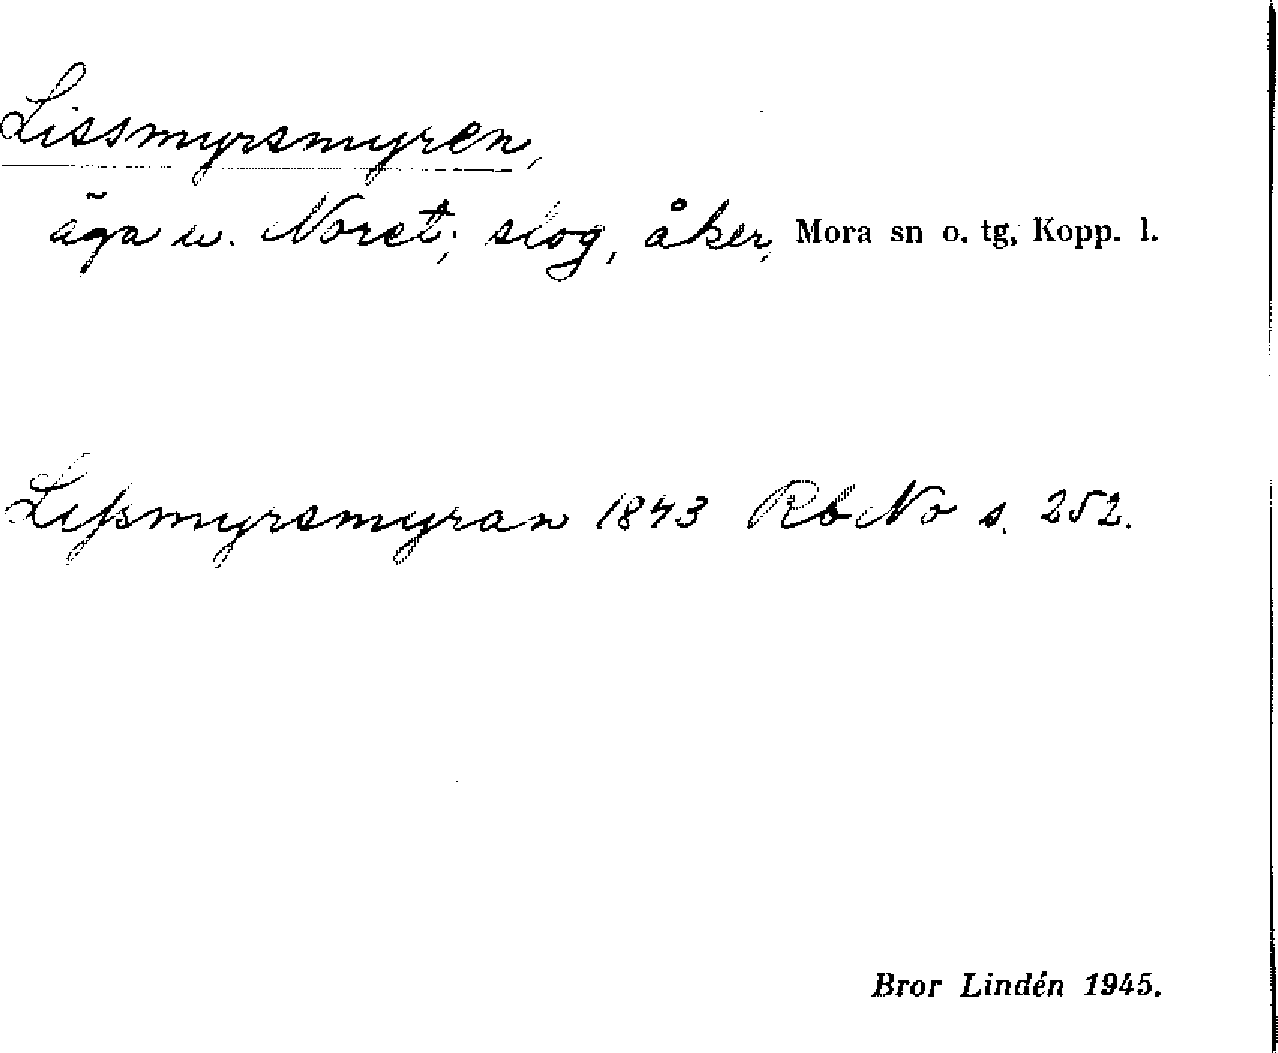 Lissmyrsmyren,
äga u. Noret; slog, åker, Mora sn o. tg, Kopp. l.
Lissmyrsmyran 1843 RbNo s. 252.
Bror Lindén 1945.